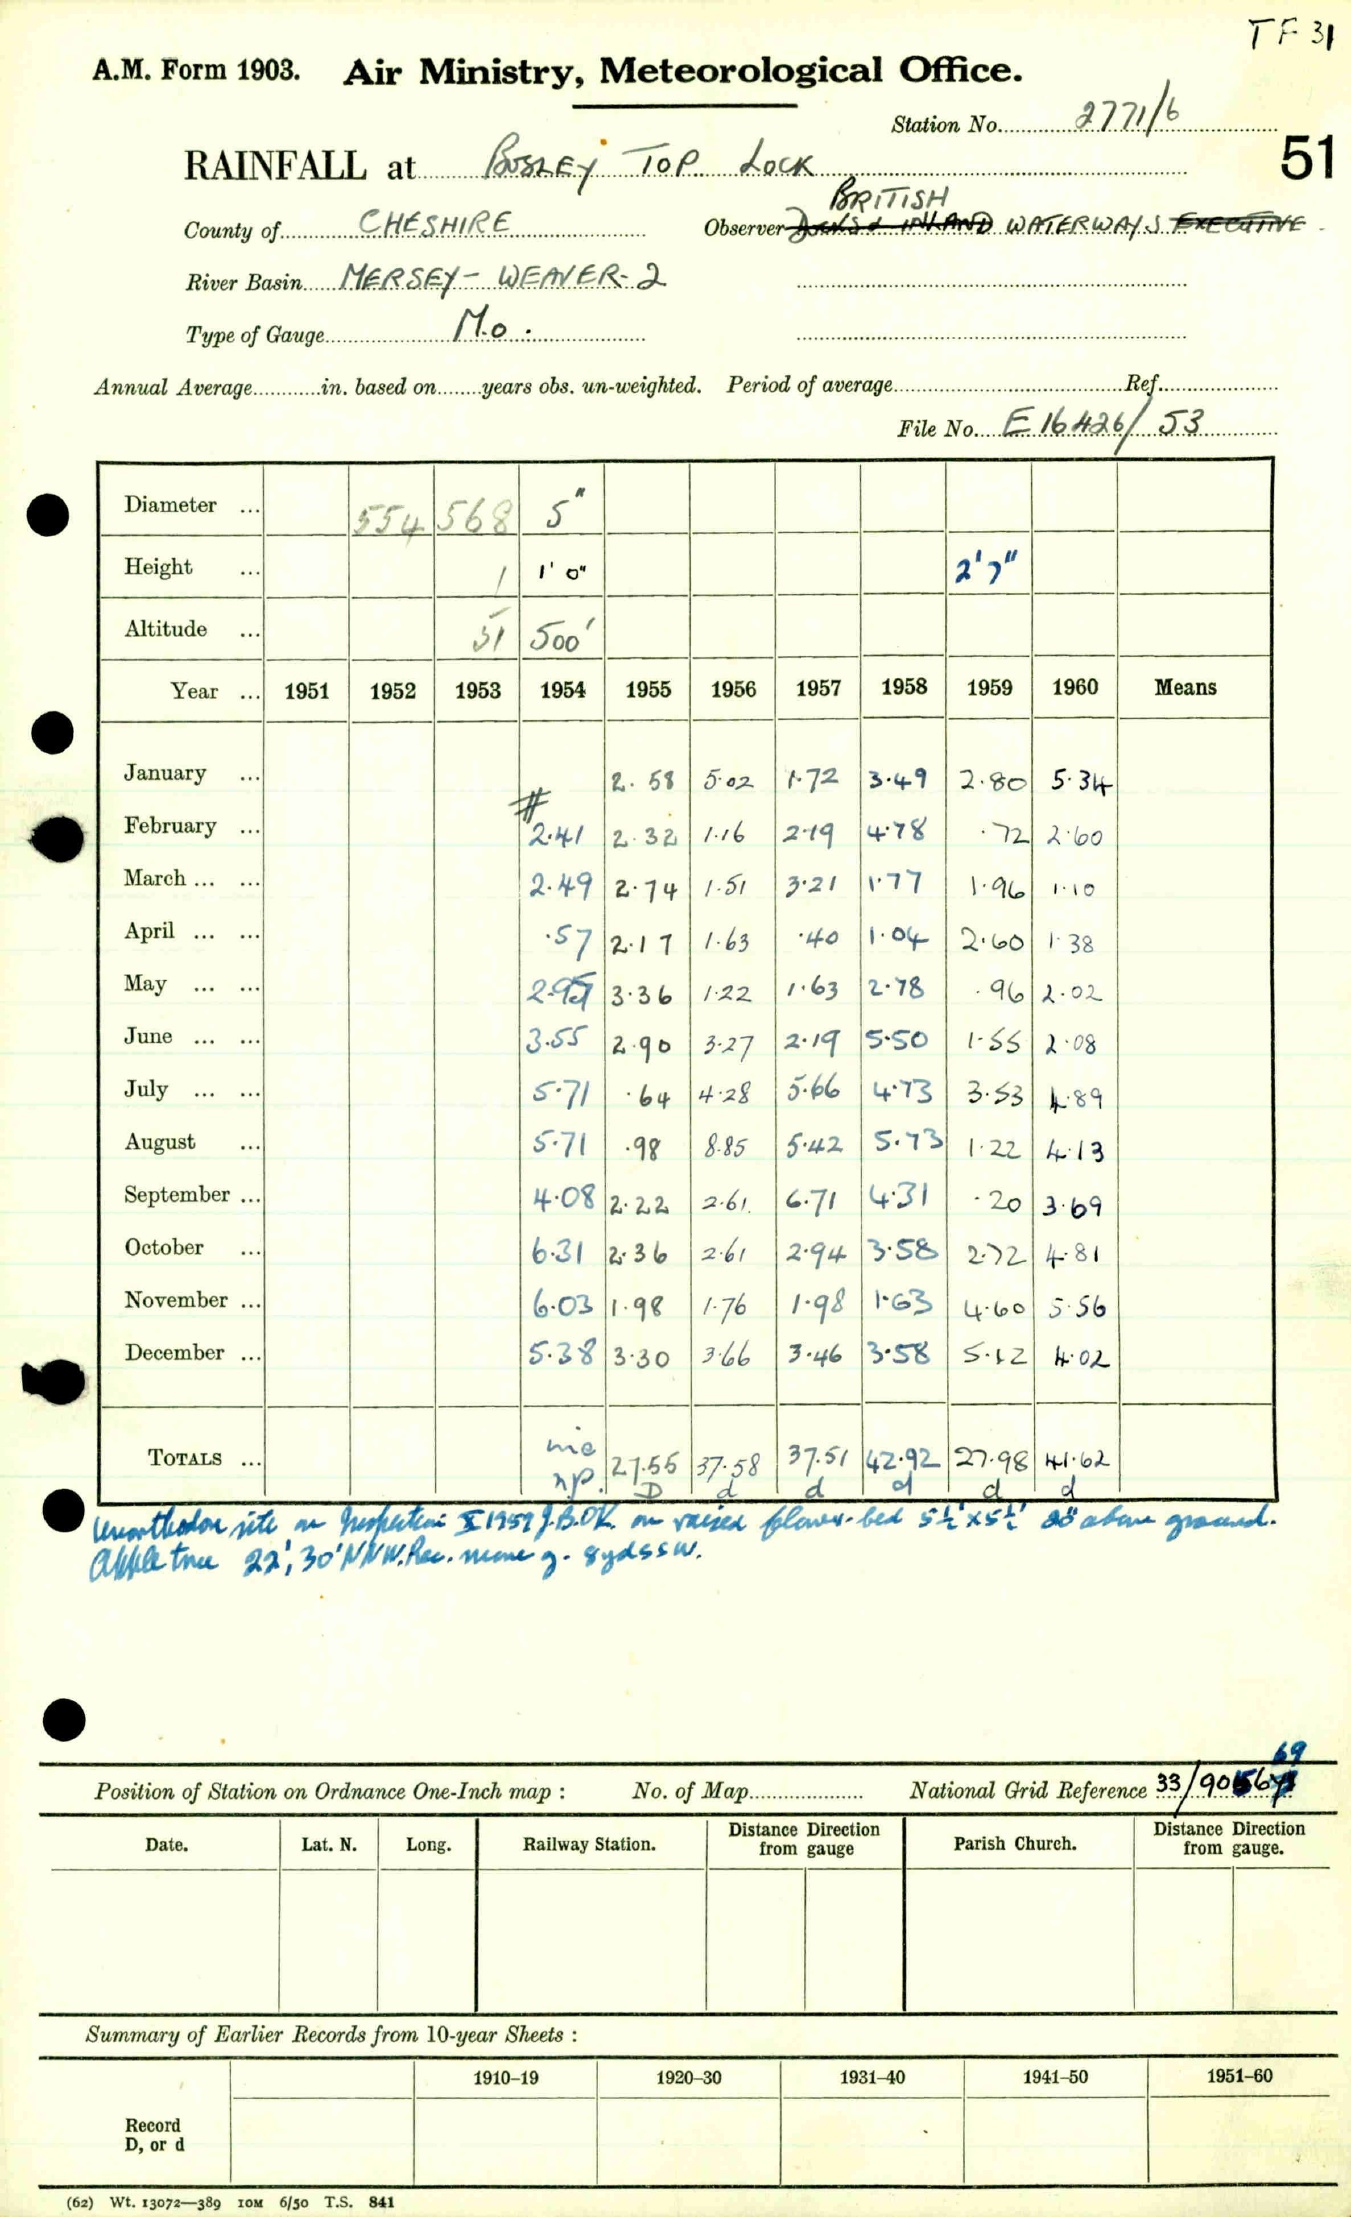 TF 31
A.M. Form 1903. Air Ministry, Meteorological Office.
Station No. 2771/6
51
RAINFALL at BOSLEY TOP LOCK
BRITISH
County of CHESHIRE Observer DOCKS & INLAND WATERWAYS EXECUTIVE
River Basin MERSEY - WEAVER - 2
Type of Gauge M.O.
Annual Average in. based on years obs. un-weighted. Period of average Ref.
File No. E16426/53
Diameter ... 554 568 5"
Height ... 1 1' 0" 2'7"
Altitude ... 51 500'
Year ... 1951 1952 1953 1954 1955 1956 1957 1958 1959 1960 Means
January ... 2.58 5.02 1.72 3.49 2.80 5.34
February ... # 2.41 2.32 1.16 2.19 4.78 .72 2.60
March ... ... 2.49 2.74 1.51 3.21 1.77 1.96 1.10
April ... ... .57 2.17 1.63 .40 1.04 2.60 1.38
May ... ... 3.36 1.22 1.63 2.78 .96 2.02
June ... ... 3.55 2.90 3.27 2.19 5.50 1.55 2.08
July ... ... 5.71 .64 4.28 5.66 4.73 3.53 4.89
August ... 5.71 .98 8.85 5.42 5.73 1.22 4.13
September ... 4.08 2.22 2.61 6.71 4.31 .20 3.69
October ... 6.31 2.36 2.61 2.94 3.58 2.72 4.81
November ... 6.03 1.98 1.76 1.98 1.63 4.60 5.56
December ... 5.38 3.30 3.66 3.46 3.58 5.12 4.02
TOTALS ... inc n.p. 27.55 37.58 37.51 42.92 27.98 41.62
D d d d d d
Unorthodox site on Inspection X 1959 J.B.OK. on raised flower-bed 5½' x 5½' above ground.
Apple tree 22', 30' NNW. Rec. move g. 8yds SW.
69
Position of Station on Ordnance One-Inch map : No. of Map National Grid Reference 33/90
Date. Lat. N. Long. Railway Station. Distance from Direction gauge Parish Church. Distance from Direction gauge.
Summary of Earlier Records from 10-year Sheets :
1910-19 1920-30 1931-40 1941-50 1951-60
Record
D, or d
(62) Wt. 13072—389 10M 6/50 T.S. 841